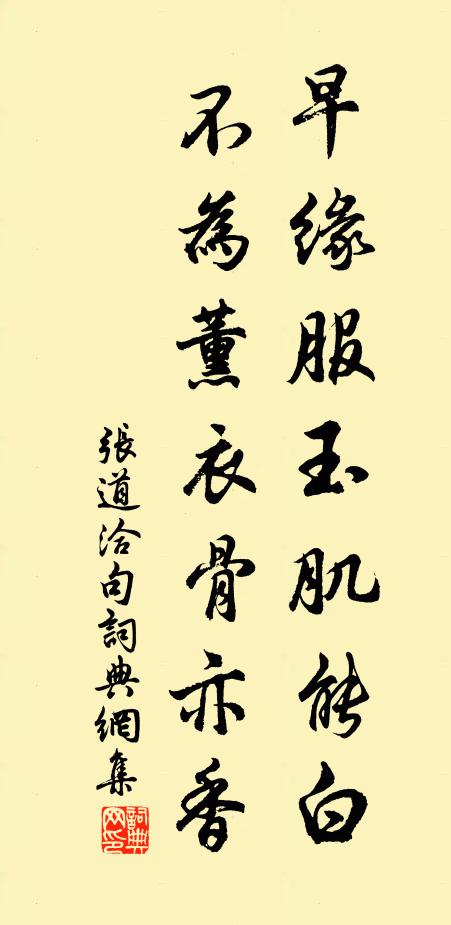 早緣服玉肌能白
不為薰衣骨亦香
張道洽句詞典網集
詞典网印